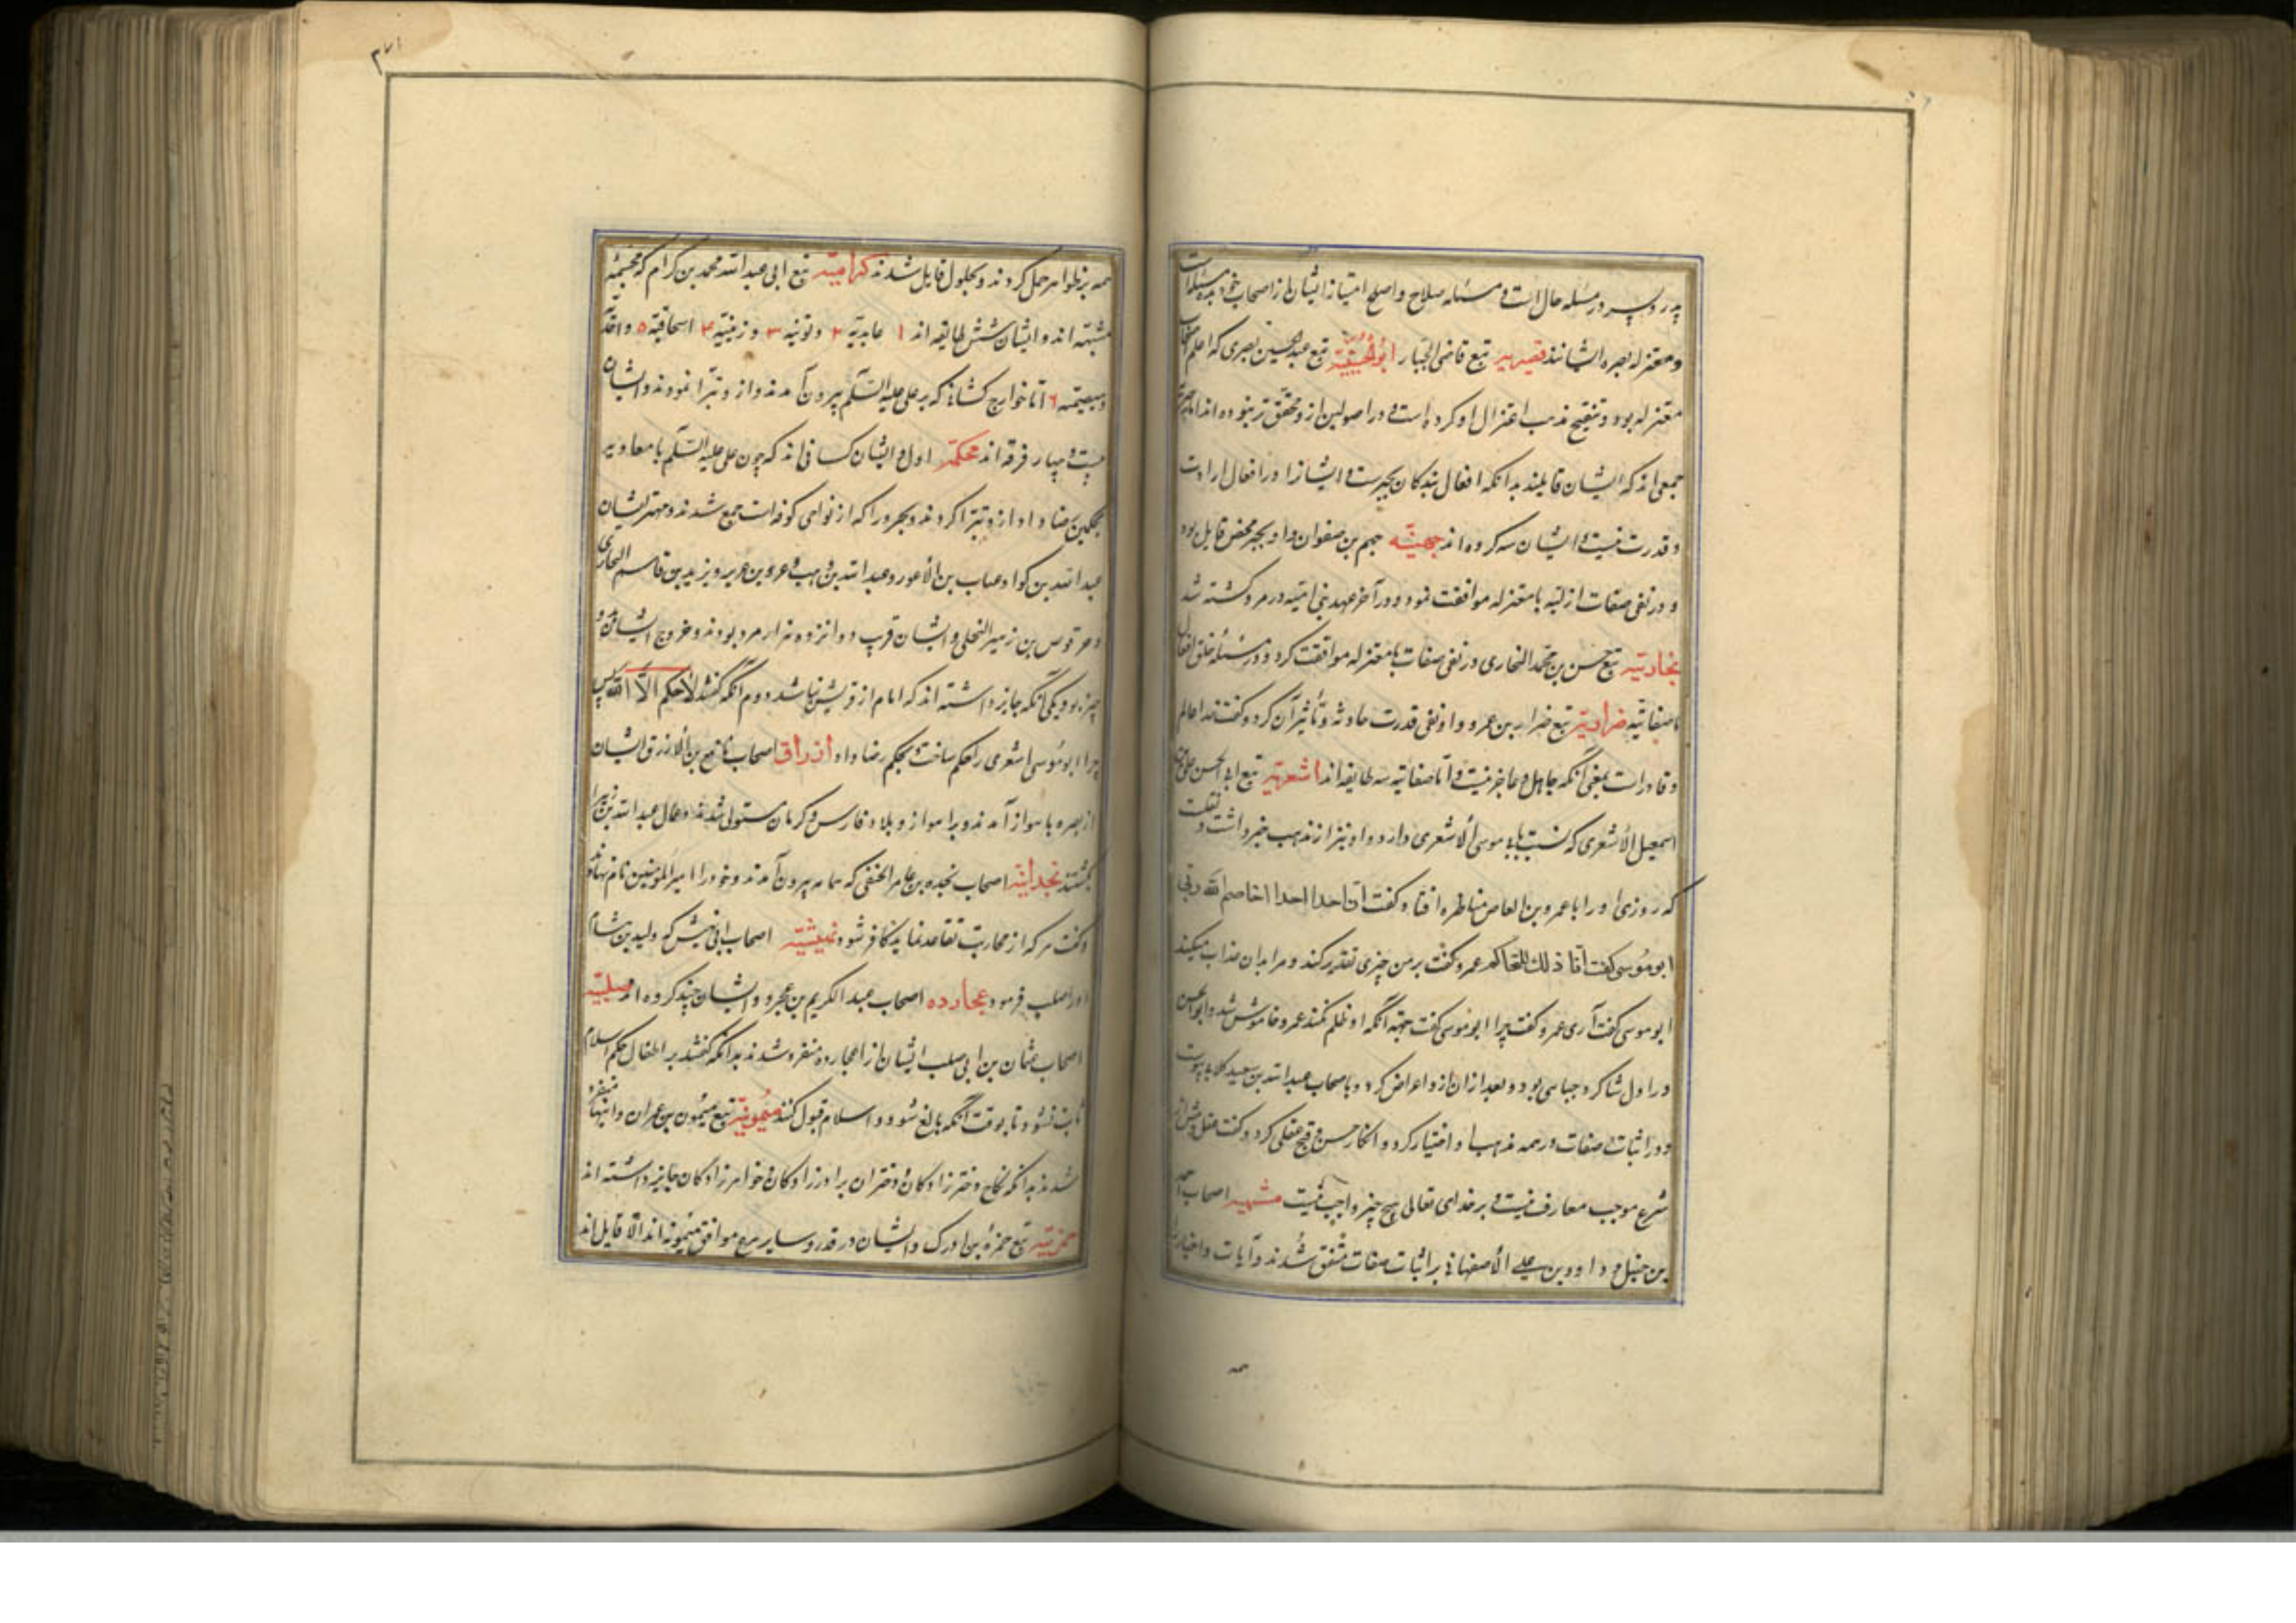 پدر و پسر در مسئله حال است و مسئله صلاح و اصلح امتیاز ایشان از اصحاب خود بدین مسئله است
و معتزله بصره ایشانند تبع قاضی الجبار تبع عبد الحسین بصری که اعلم
معتزله بود و تنقیح مذهب اعتزال او کرده است و در اصولین ازو محقق‌تر نبوده اند اما جبریه
جمعی اند که ایشان قایلند بدانکه افعال بندگان بجبرست و ایشانرا در افعال ارادت
و قدرت نیست و ایشان سه گروه اند جهمیّه جهم بن صفوان و او بجبر محض قایل بود
و در نفی صفات ازلیه با معتزله موافقت نمود و در آخر عهد بنی امیّه در مرو کشته شد
نجاریّه تبع حسن بن محمد النجاری در نفی صفات با معتزله موافقت کرد و در مسئله خلق افعال
با صفاتیّه ضراریه تبع ضرار بن عمرو و او نفی قدرت حادثه و تأثیر آن کرد و گفت خدا عالم
و قادر است بمعنی آنکه جاهل و عاجز نیست و اما صفاتیه سه طایفه اند اشعریه تبع ابی الحسن علی بن
اسمعیل الأشعری که نسبت بابو موسی الأشعری دارد و او نیز از مذهب خبر داشت و نقلست
که روزی او را با عمرو بن العاص مناظره افتاد گفت ان احدا احدا اخاصم الله ربی
ابو موسی گفت انا ذلك المتحاکم عمرو گفت بر من چیزی تقدیر کند و مرا بدان عذاب میکند
ابو موسی گفت آری عمرو گفت چرا ابو موسی گفت جهته آنکه او ظلم نکند عمرو خاموش شد و ابو الحسن
در اول شاگرد جباسی بود و بعد از ان ازو اعراض کرد و باصحاب عبد الله بن سعید کلابی پیوست
و در اثبات صفات در همه مذهب او اختیار کرد و انکار حسن و قبح عقلی کرد و گفت عقل پیش از
شرع موجب معارف نیست و بر خدای تعالی هیچ چیز واجب نیست مشبهه اصحاب احمد
بن حنبل و داوود بن علی الأصفهانی بر اثبات صفات متفق شدند و آیات و اخبار را
همه
۳۷۱
همه بر ظواهر حمل کردند و بحلول قایل شدند کرامیّه تبع ابی عبد الله محمد بن کرام که مجسمه
مشبهه اند و ایشان شش طایفه اند ۱ عابدیّه ۲ و تونیه ۳ و زینیّه ۴ اسحاقیّه ۵ و احدیّه
و هیصمیّه ۶ اما خوارج کسانند که بر علی علیه السّلم بیرون آمدند و ازو تبرّا نمودند و ایشان
بیست و چهار فرقه اند محکمّه اول و ایشان کسانی اند که چون علی علیه السّلم با معاویه
بحکمین رضا داد ازو تبرّا کردند و بحرورا که از نوای کوفه است جمع شدند و مهتر ایشان
عبد الله بن کوا و عتاب بن الأعور و عبد الله بن وهب و عرو بن جریر و یزید بن قاسم
و حرقوس بن زهیر النجلی و ایشان قریب دوانزده هزار مرد بودند و خروج ایشان بدو
چیز بود یکی آنکه جایز داشته اند که امام از قریش نباشد دوم آنکه گفتند لا حکم الّا الله پس
چرا ابو موسی اشعری را حکم ساخت و بحکم رضا داد ازراق اصحاب نافع بن الأزرق ایشان
از بصره باهواز آمدند و بر اهواز و بلاد فارس و کرمان مستولی شدند و عمال عبد الله بن زبیر را
بکشتند نجداتیّه اصحاب نجده بن عامر الحنفی که بیمامه بیرون آمدند و خود را امیر المؤمنین نام نهادند
و گفت هر که از محاربت تقاعد نماید کافر شود اصحاب ابی که ولید بن هشام
او را صلب فرمود عجارده اصحاب عبد الکریم بن عجرد و ایشان چند گروه اند صلیتیه
اصحاب عثمان بن ابی صلب ایشان از عجارده منفرد شدند بدانکه گفتند بر اطفال حکم اسلام
ثابت نشود تا بوقت آنکه بالغ شود و اسلام قبول کند میمونیّه تبع میمون بن عمران و اینها منفرد
شدند بدانکه نکاح دختر زادگان و دختران برادر زادگان و خواهر زادگان جایز داشته اند
حمزیّه تبع حمزه بن ادرک و ایشان در قدر و سایر بدع موافق میمونه اند الّا قایل اند